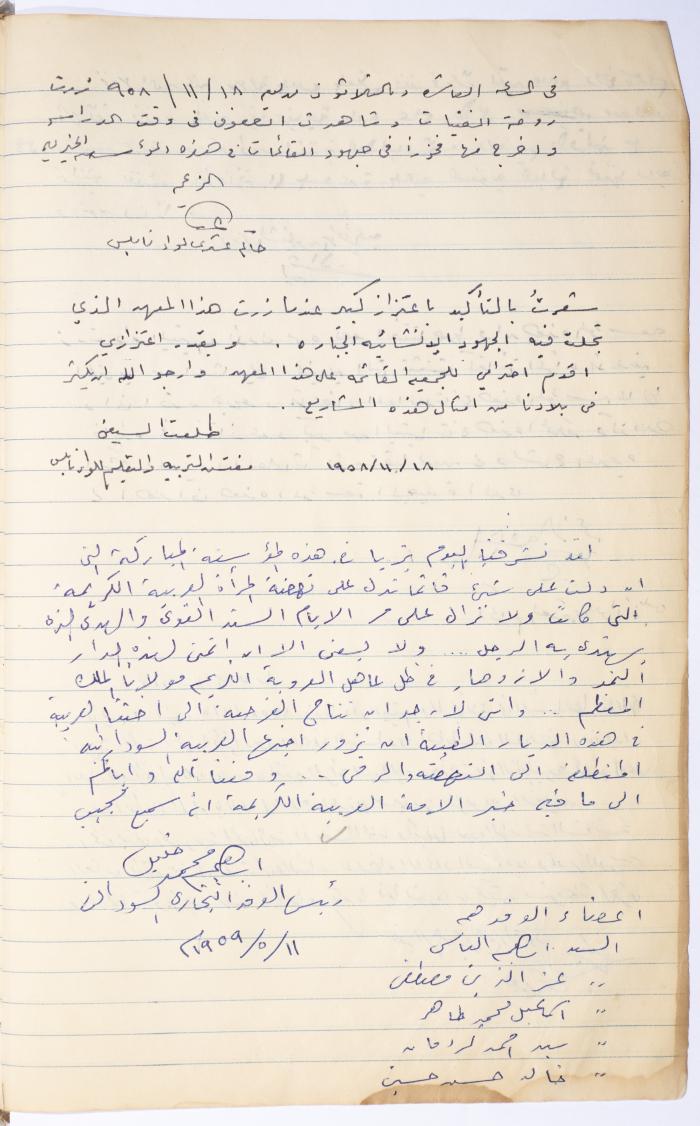 في الساعه العاشره والثلاثون من يوم ١٨/١١/٩٥٨ زرت
روضة الفتيات وشاهدت الصفوف في وقت الدراسه
واخرج منها فخورا في جهود القائمات في هذه المؤسسه الخيريه
الزعيم
حاكم عسكري لواء نابلس
شعرتُ بالتأكيد باعتزاز كبير عندما زرت هذا المعهد الذي
تجلت فيه الجهود الإنشائيه الجبّاره . وبقدر اعتزازي
اقدم احترامي للجمعيه القائمه على هذا المعهد وارجو الله ان يكثر
في بلادنا من امثال هذه المشاريع .
طلعت السيفي
مفتش التربيه والتعليم للواء نابلس
١٨/١١/١٩٥٨
لقد تشرفنا اليوم بزيارة هذه المؤسسة المباركة التي
ان دلت على شئ فانما تدل على نهضة المرأة العربية الكريمة
التي كانت ولا تزال على مر الايام السند القوي والهدى الذي
يهتدي به الرجل .... ولا يسعني الا ان اتمنى لهذه الدار
التقدم والازدهار في ظل عاهل العروبة الكريم مولانا الملك
المعظم ... وانني لارجو ان تتاح الفرصة الى اختنا العربية
في هذه الديار الطيبة ان تزور اختها العربية السودانية
المنطلقة الى النهضة والرقي ... وفقنا الله واياكم
الى ما فيه خير الامة العربية الكريمة انه سميع مجيب
ابراهيم محمد خليل
رئيس الوفد التجاري السوداني
١١/٥/١٩٥٩م
اعضاء الوفد هم
السيد ابراهيم الياس
،، عز الدين مصطفى
،، اسماعيل محمد طاهر
،، سيد احمد
،، خالد حسن حسين